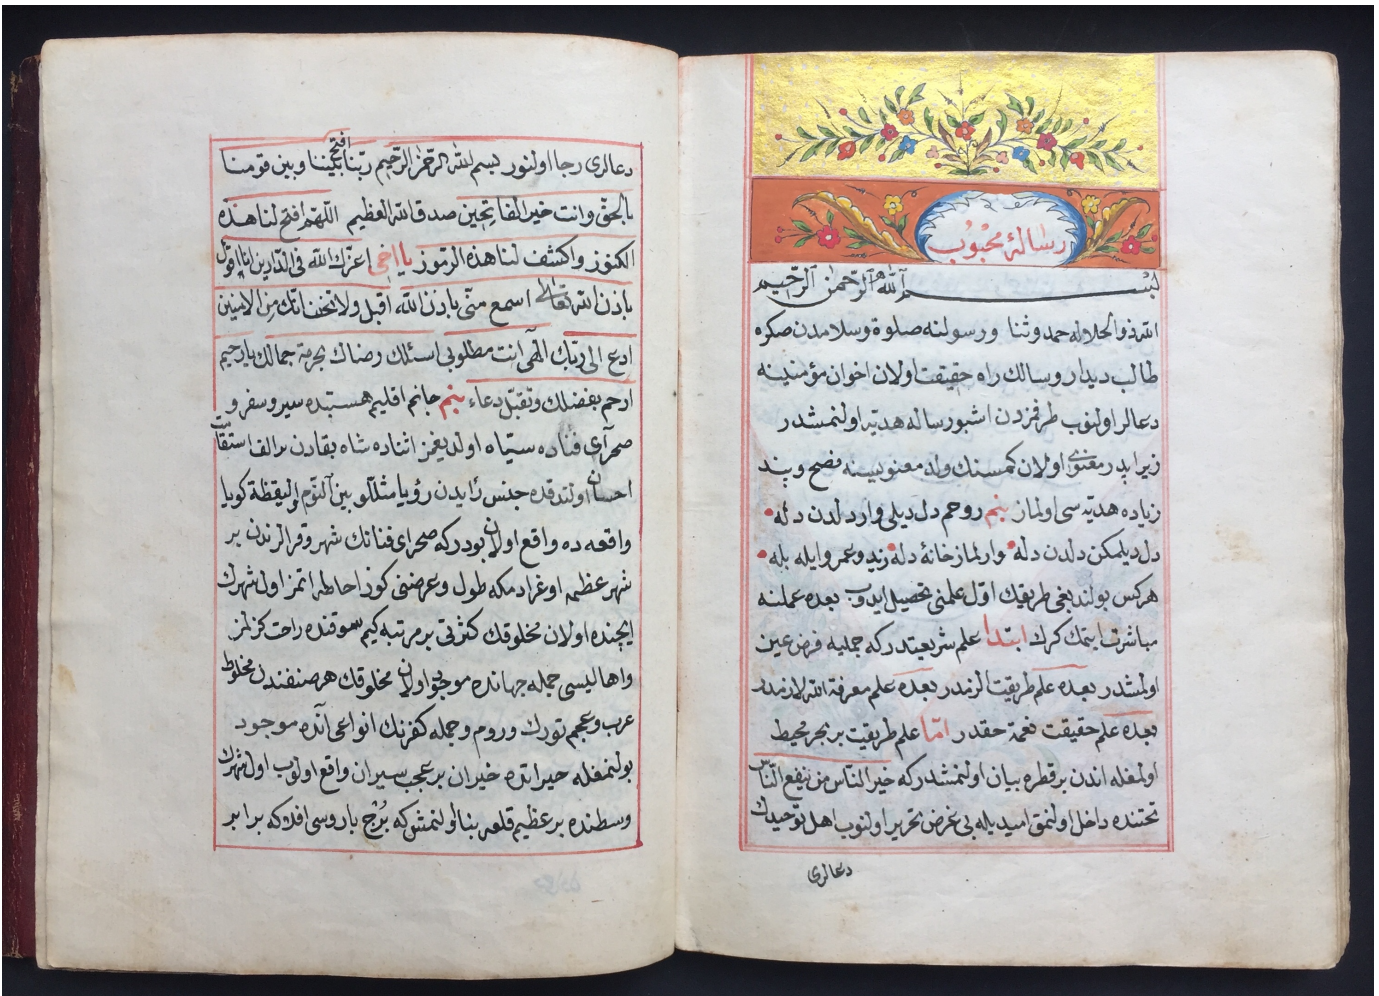 رسالۀ محبوب
بسم الله الرحمن الرحيم
الله ذو الجلاله حمد و ثنا و رسولنه صلوة و سلامدن صكره
طالب ديدار و سالك راه حقيقت اولان اخوان مؤمنينه
دعالر اولنوب طرفمزدن اشبو رساله هديه اولنمشدر
زيرا پدر معنوى اولان كمسنك ولد معنويسينه نصح و پند
زياده هديه سى اولماز بنم روحم دل ديلى وارد لدن دله
دل ديلمكن دلدن دله وارلماز خانۀ دله زيد و عمرو ايله بله
هركس بولنديغى طريقك اول علمنى تحصيل ايدوب بعده عملنه
مباشرت ايتمك كرك ابتدا علم شريعتدر كه جمليه فرض عين
اولمشدر بعده علم طريقت الزمدر بعده علم معرفة الله لازمدر
بعده علم حقيقت نعمة حقدر امّا علم طريقت بر بحر محيط
اولمغله اندن بر قطره بيان اولنمشدر كه خير الناس من ينفع الناس
تحتنده داخل اولنمق اميد يله بى غرض تحرير اولنوب اهل توحيدك
دعالرى
دعالرى رجا اولنور بسم الله الرحمن الرحيم ربّنا افتح بيننا و بين قومنا
بالحقّ وانت خير الفاتحين صدق الله العظيم اللّهمّ افتح لنا هذه
الكنوز واكشف لنا هذه الرموز يا اخى اعزك الله فى الدّارين انا اقول
باذن الله تعالى اسمع منّى باذن الله اقبل ولا تخف انّك من الامنين
ادع الى ربّك الهى انت مطلوبى اسئلك رضاك بحرمة جمالك يا رحيم
ارحم بفضلك وتقبّل دعاء بنم جانم اقليم هستيده سير و سفر و
صحرآى فناده سيّاه اولديغمز اثناده شاه بقادن بزالف استقامت
احسان اولندقده جنس زايدن رؤيا مثللو بين النّوم و اليقظة كويا
واقعه ده واقع اولان بودركه صحراى فنانك شهر و قرالرندن بر
شهر عظيمه اوغرادمكه طول و عرضنى كوز احاطه ايتمز اول شهرك
ايچنده اولان مخلوقك كثرتى بر مرتبه كيم سوقنده راحت كزلمز
واهاليسى جمله جهانده موجود اولان مخلوقك هر صنفندن مخلوط
عرب و عجم تورك و روم و جمله كفرنك انواعى آنده موجود
بولنمغله حيراتده خيران بر عجب سيران واقع اولوب اول شهرك
وسطنده بر عظيم قلعه بنا اولنمش كه برج باروسى افلاكه برابر